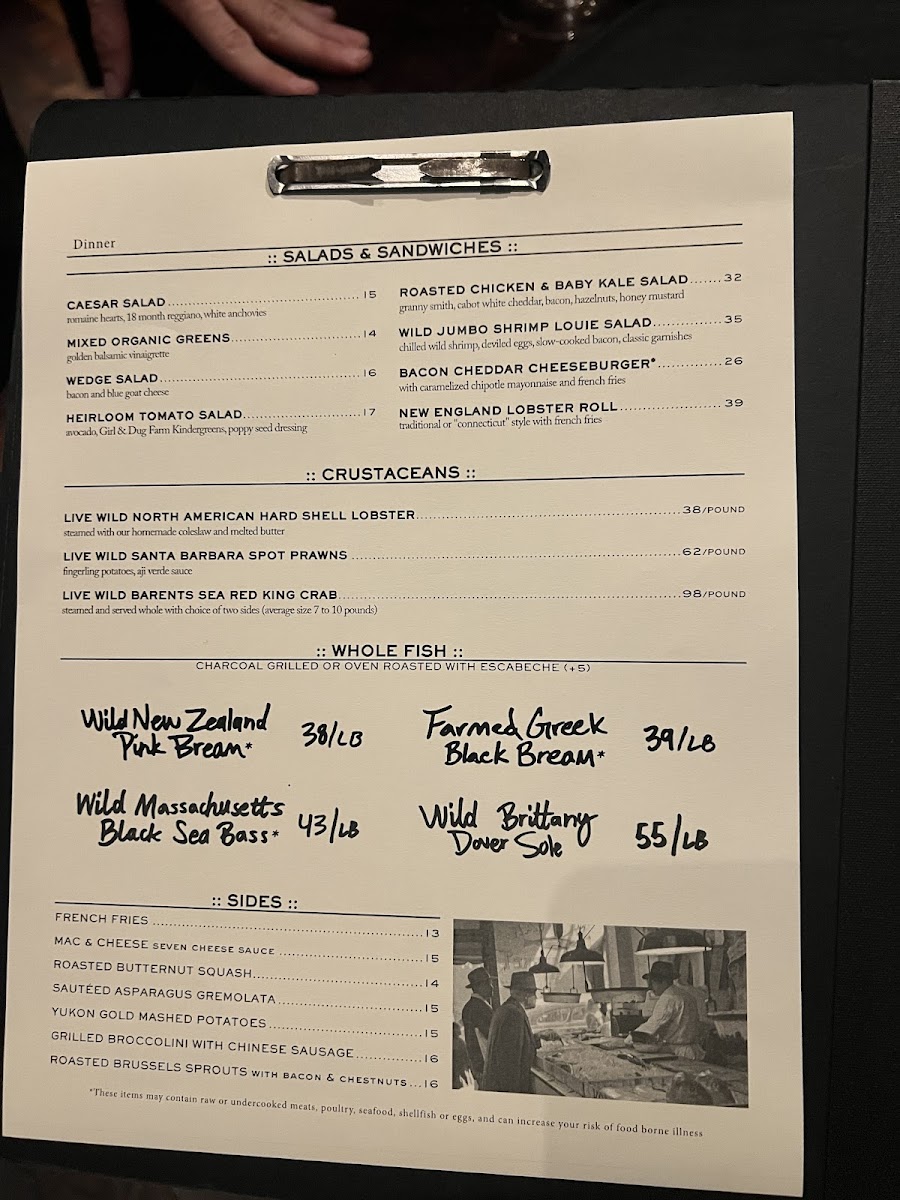 Dinner
:: SALADS & SANDWICHES ::
CAESAR SALAD 15
romaine hearts, 18 month reggiano, white anchovies
MIXED ORGANIC GREENS 14
golden balsamic vinaigrette
WEDGE SALAD 16
bacon and blue goat cheese
HEIRLOOM TOMATO SALAD 17
avocado, Girl & Dug Farm Kindergreens, poppy seed dressing
ROASTED CHICKEN & BABY KALE SALAD 32
granny smith, cabot white cheddar, bacon, hazelnuts, honey mustard
WILD JUMBO SHRIMP LOUIE SALAD 35
chilled wild shrimp, deviled eggs, slow-cooked bacon, classic garnishes
BACON CHEDDAR CHEESEBURGER* 26
with caramelized chipotle mayonnaise and french fries
NEW ENGLAND LOBSTER ROLL 39
traditional or "connecticut" style with french fries
:: CRUSTACEANS ::
LIVE WILD NORTH AMERICAN HARD SHELL LOBSTER 38/POUND
steamed with our homemade coleslaw and melted butter
LIVE WILD SANTA BARBARA SPOT PRAWNS 62/POUND
fingerling potatoes, aji verde sauce
LIVE WILD BARENTS SEA RED KING CRAB 98/POUND
steamed and served whole with choice of two sides (average size 7 to 10 pounds)
:: WHOLE FISH ::
CHARCOAL GRILLED OR OVEN ROASTED WITH ESCABECHE (+5)
Wild New Zealand
Pink Bream* 38/LB
Farmed Greek
Black Bream* 39/LB
Wild Massachusetts
Black Sea Bass* 43/LB
Wild Brittany
Dover Sole 55/LB
:: SIDES ::
FRENCH FRIES 13
MAC & CHEESE SEVEN CHEESE SAUCE 15
ROASTED BUTTERNUT SQUASH 14
SAUTÉED ASPARAGUS GREMOLATA 15
YUKON GOLD MASHED POTATOES 15
GRILLED BROCCOLINI WITH CHINESE SAUSAGE 16
ROASTED BRUSSELS SPROUTS WITH BACON & CHESTNUTS 16
*These items may contain raw or undercooked meats, poultry, seafood, shellfish or eggs, and can increase your risk of food borne illness